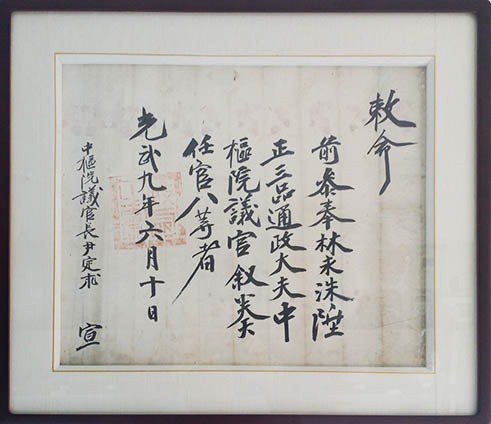 敕命
前叅奉林洙陞
正三品通政大夫中
樞院議官叙奏
任官八等者
光武九年六月十日
中樞院議官長尹定求 宣